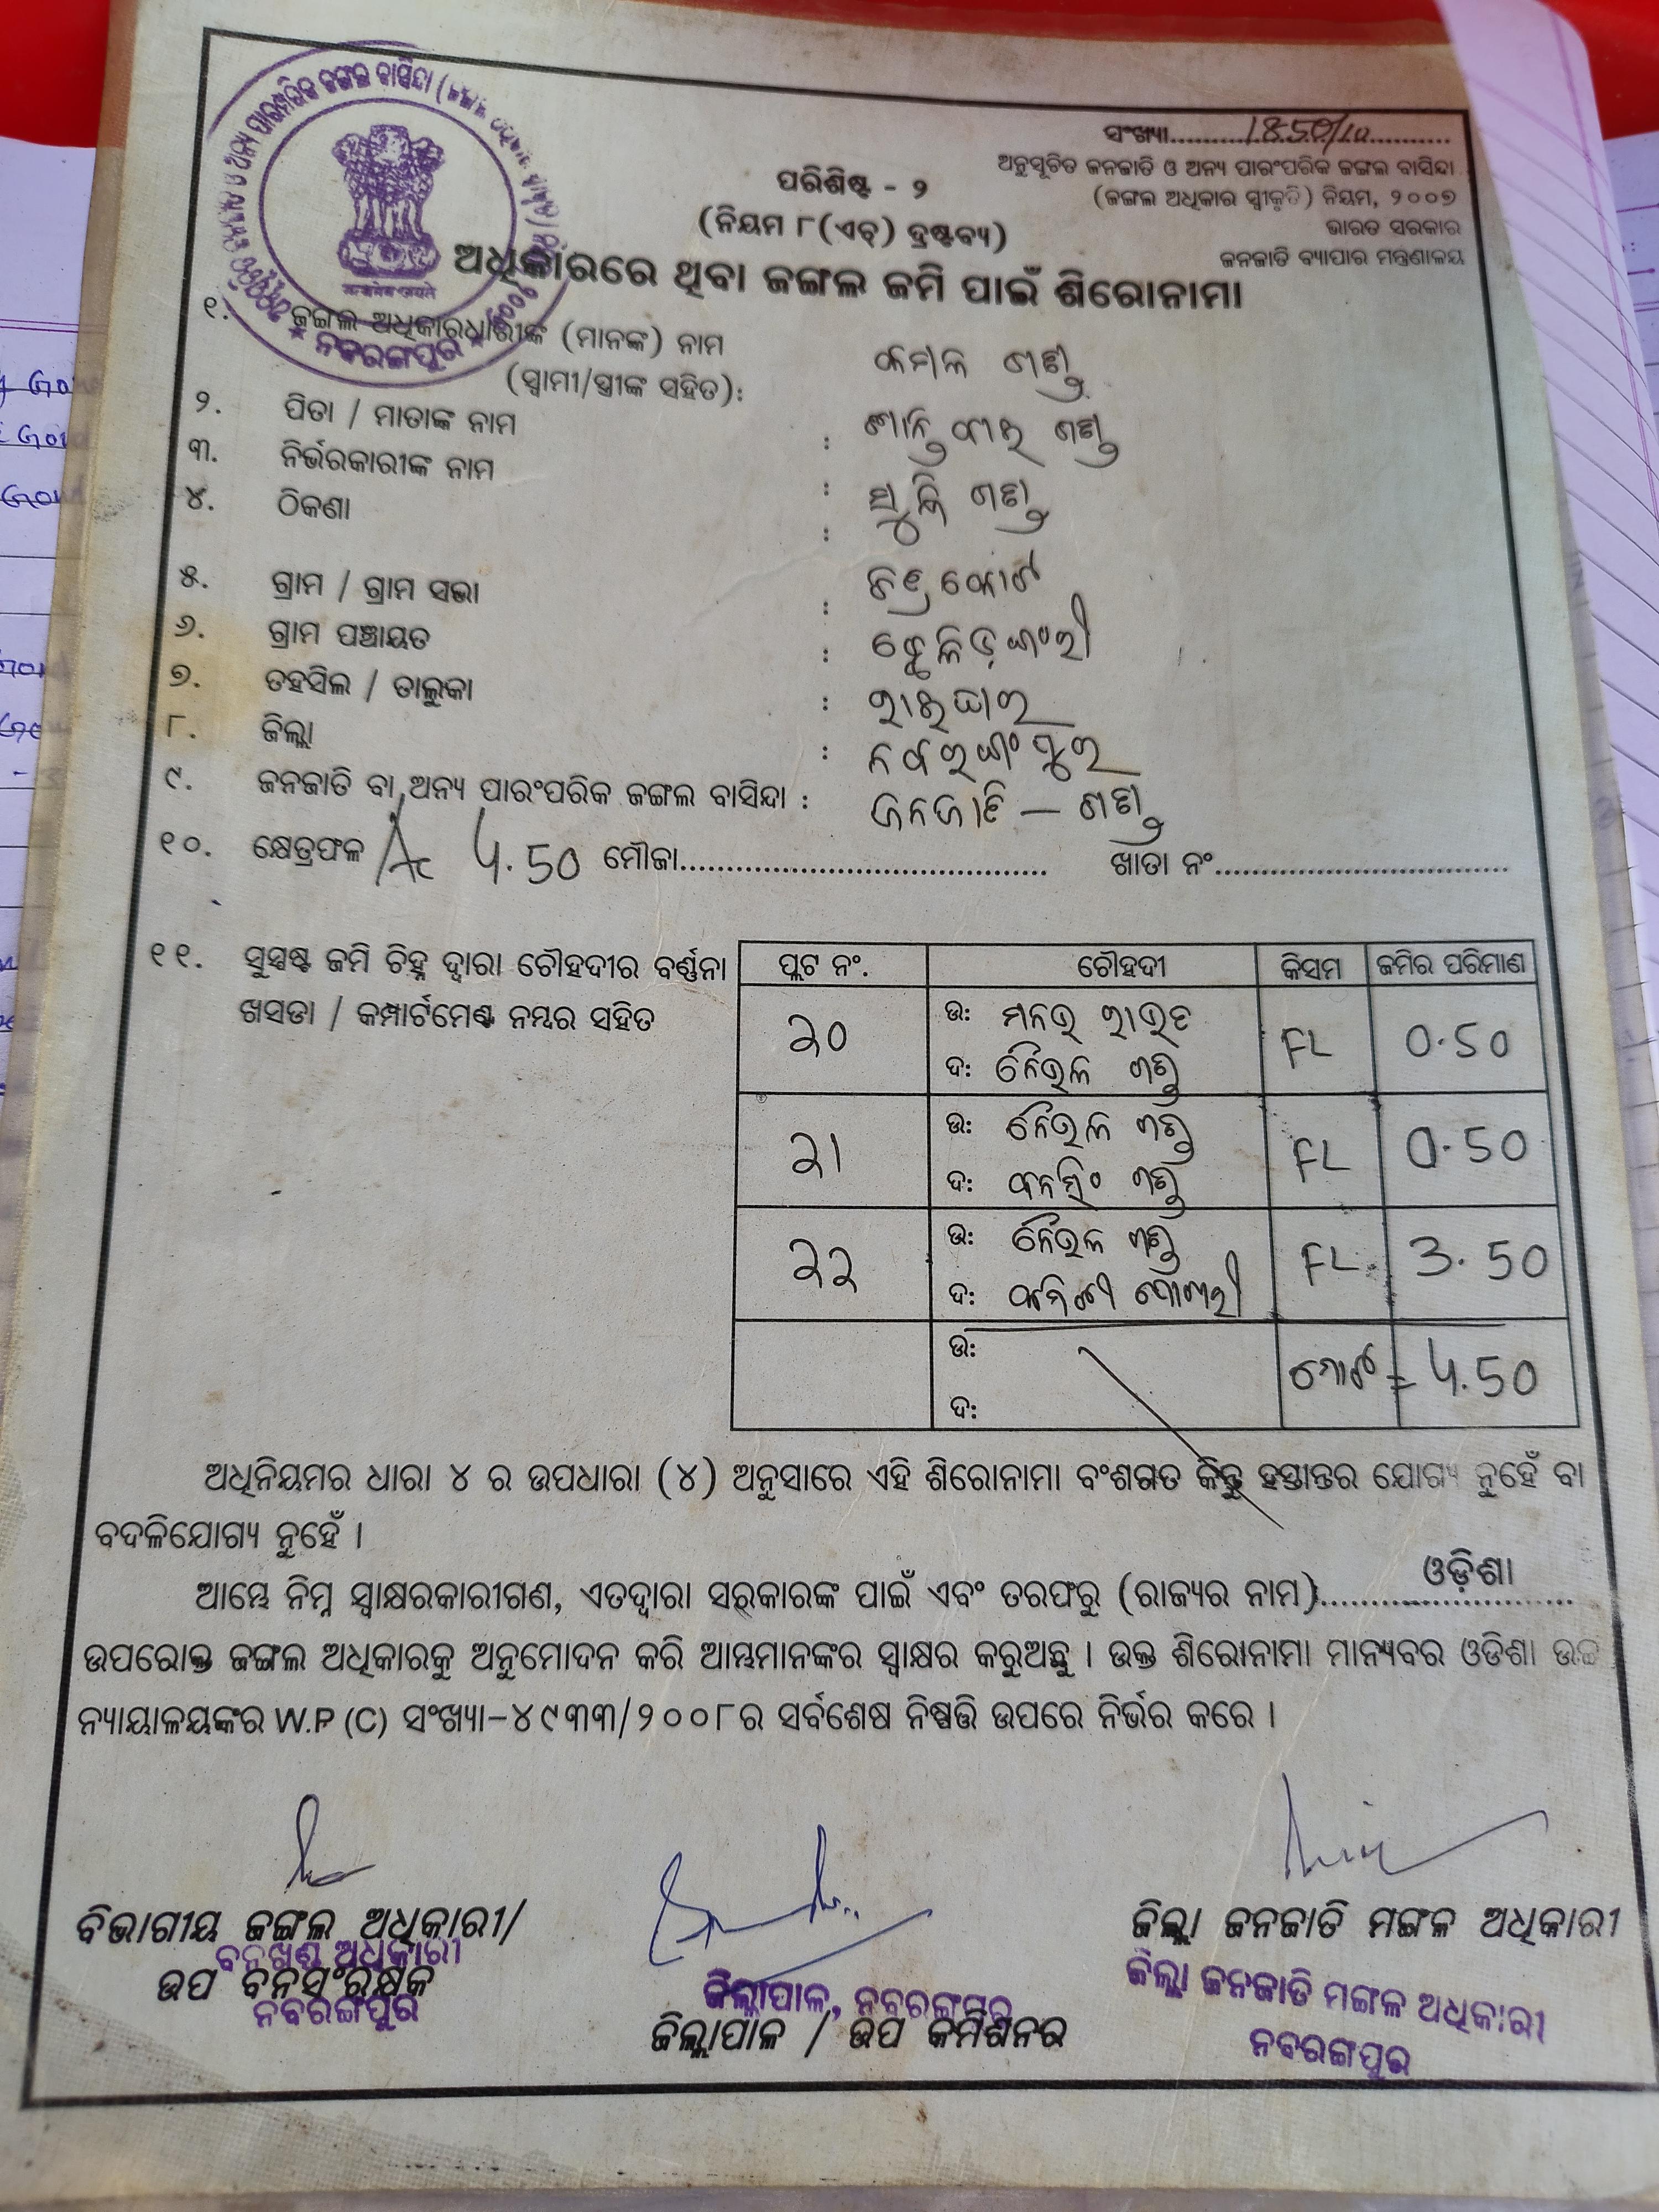 ସଂଖ୍ୟା..........1850/10..........
ଅନୁସୂଚିତ ଜନଜାତି ଓ ଅନ୍ୟ ପାରଂପରିକ ଜଙ୍ଗଲ ବାସିନ୍ଦା
(ଜଙ୍ଗଲ ଅଧିକାର ସ୍ୱୀକୃତି) ନିୟମ, ୨୦୦୭
ଭାରତ ସରକାର
ଜନଜାତି ବ୍ୟାପାର ମନ୍ତ୍ରଣାଳୟ
ପରିଶିଷ୍ଟ - ୨
(ନିୟମ ୮(ଏଚ୍) ଦ୍ରଷ୍ଟବ୍ୟ)
ଅଧିକାରରେ ଥିବା ଜଙ୍ଗଲ ଜମି ପାଇଁ ଶିରୋନାମା
ନବରଙ୍ଗପୁର
୧. ଜଙ୍ଗଲ ଅଧିକାରଧାରୀଙ୍କ (ମାନଙ୍କ) ନାମ
(ସ୍ୱାମୀ/ସ୍ତ୍ରୀଙ୍କ ସହିତ): କମଳ ଗଣ୍ଡ
୨. ପିତା / ମାତାଙ୍କ ନାମ : ଗଣ୍ଡ
୩. ନିର୍ଭରକାରୀଙ୍କ ନାମ : ଗଣ୍ଡ
୪. ଠିକଣା :
୫. ଗ୍ରାମ / ଗ୍ରାମ ସଭା :
୬. ଗ୍ରାମ ପଞ୍ଚାୟତ :
୭. ତହସିଲ / ତାଲୁକା : ରାଇଘର
୮. ଜିଲ୍ଲା : ନବରଙ୍ଗପୁର
୯. ଜନଜାତି ବା ଅନ୍ୟ ପାରଂପରିକ ଜଙ୍ଗଲ ବାସିନ୍ଦା : ଜନଜାତି — ଗଣ୍ଡ
୧୦. କ୍ଷେତ୍ରଫଳ Ac 4.50 ମୌଜା........................................ ଖାତା ନଂ................................
୧୧. ସୁସ୍ପଷ୍ଟ ଜମି ଚିହ୍ନ ଦ୍ୱାରା ଚୌହଦୀର ବର୍ଣ୍ଣନା
ଖସଡା / କମ୍ପାର୍ଟମେଣ୍ଟ ନମ୍ବର ସହିତ
ପ୍ଲଟ ନଂ. ଚୌହଦୀ କିସମ ଜମିର ପରିମାଣ
20 ଉ: FL 0.50
ଦ: ଗଣ୍ଡ
21 ଉ: ଗଣ୍ଡ FL 0.50
ଦ: ଗଣ୍ଡ
22 ଉ: ଗଣ୍ଡ FL 3.50
ଦ:
ଉ: ମୋଟ = 4.50
ଦ:
ଅଧିନିୟମର ଧାରା ୪ ର ଉପଧାରା (୪) ଅନୁସାରେ ଏହି ଶିରୋନାମା ବଂଶଗତ କିନ୍ତୁ ହସ୍ତାନ୍ତର ଯୋଗ୍ୟ ନୁହେଁ ବା
ବଦଳିଯୋଗ୍ୟ ନୁହେଁ ।
ଆମ୍ଭେ ନିମ୍ନ ସ୍ୱାକ୍ଷରକାରୀଗଣ, ଏତଦ୍ୱାରା ସରକାରଙ୍କ ପାଇଁ ଏବଂ ତରଫରୁ (ରାଜ୍ୟର ନାମ)..........ଓଡ଼ିଶା..........
ଉପରୋକ୍ତ ଜଙ୍ଗଲ ଅଧିକାରକୁ ଅନୁମୋଦନ କରି ଆମ୍ଭମାନଙ୍କର ସ୍ୱାକ୍ଷର କରୁଅଛୁ । ଉକ୍ତ ଶିରୋନୀମା ମାନ୍ୟବର ଓଡିଶା ଉଚ୍ଚ
ନ୍ୟାୟାଳୟଙ୍କର W.P (C) ସଂଖ୍ୟା-୪୯୩୩/୨୦୦୮ର ସର୍ବଶେଷ ନିଷ୍ପତ୍ତି ଉପରେ ନିର୍ଭର କରେ ।
ବିଭାଗୀୟ ଜଙ୍ଗଲ ଅଧିକାରୀ/
ବନଖଣ୍ଡ ଅଧିକାରୀ
ଉପ ବନସଂରକ୍ଷକ
ନବରଙ୍ଗପୁର
ଜିଲ୍ଲାପାଳ, ନବରଙ୍ଗପୁର
ଜିଲ୍ଲାପାଳ / ଉପ କମିଶନର
ଜିଲ୍ଲା ଜନଜାତି ମଙ୍ଗଳ ଅଧିକାରୀ
ଜିଲ୍ଲା ଜନଜାତି ମଙ୍ଗଳ ଅଧିକାରୀ
ନବରଙ୍ଗପୁର